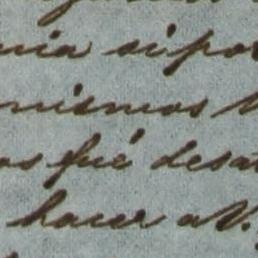 nia si por
mismos V
os fué desa
hacer a V.